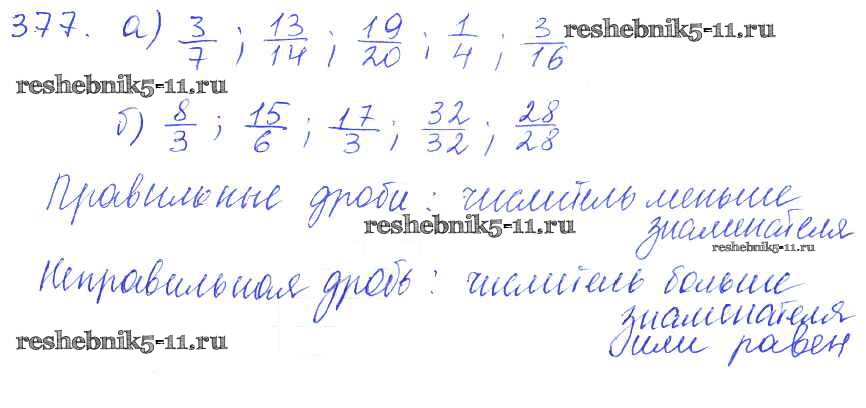 377. а) 3/7 ; 13/14 ; 19/20 ; 1/4 ; 3/16 reshebnik5-11.ru
reshebnik5-11.ru
б) 8/3 ; 15/6 ; 17/3 ; 32/32 ; 28/28
Правильные дроби : числитель меньше
reshebnik5-11.ru знаменателя
reshebnik5-11.ru
Неправильная дробь : числитель больше
знаменателя
reshebnik5-11.ru или равен